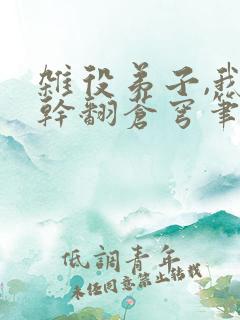 雜役弟子,我
幹翻蒼穹筆
低調青年
未经同意禁止转载